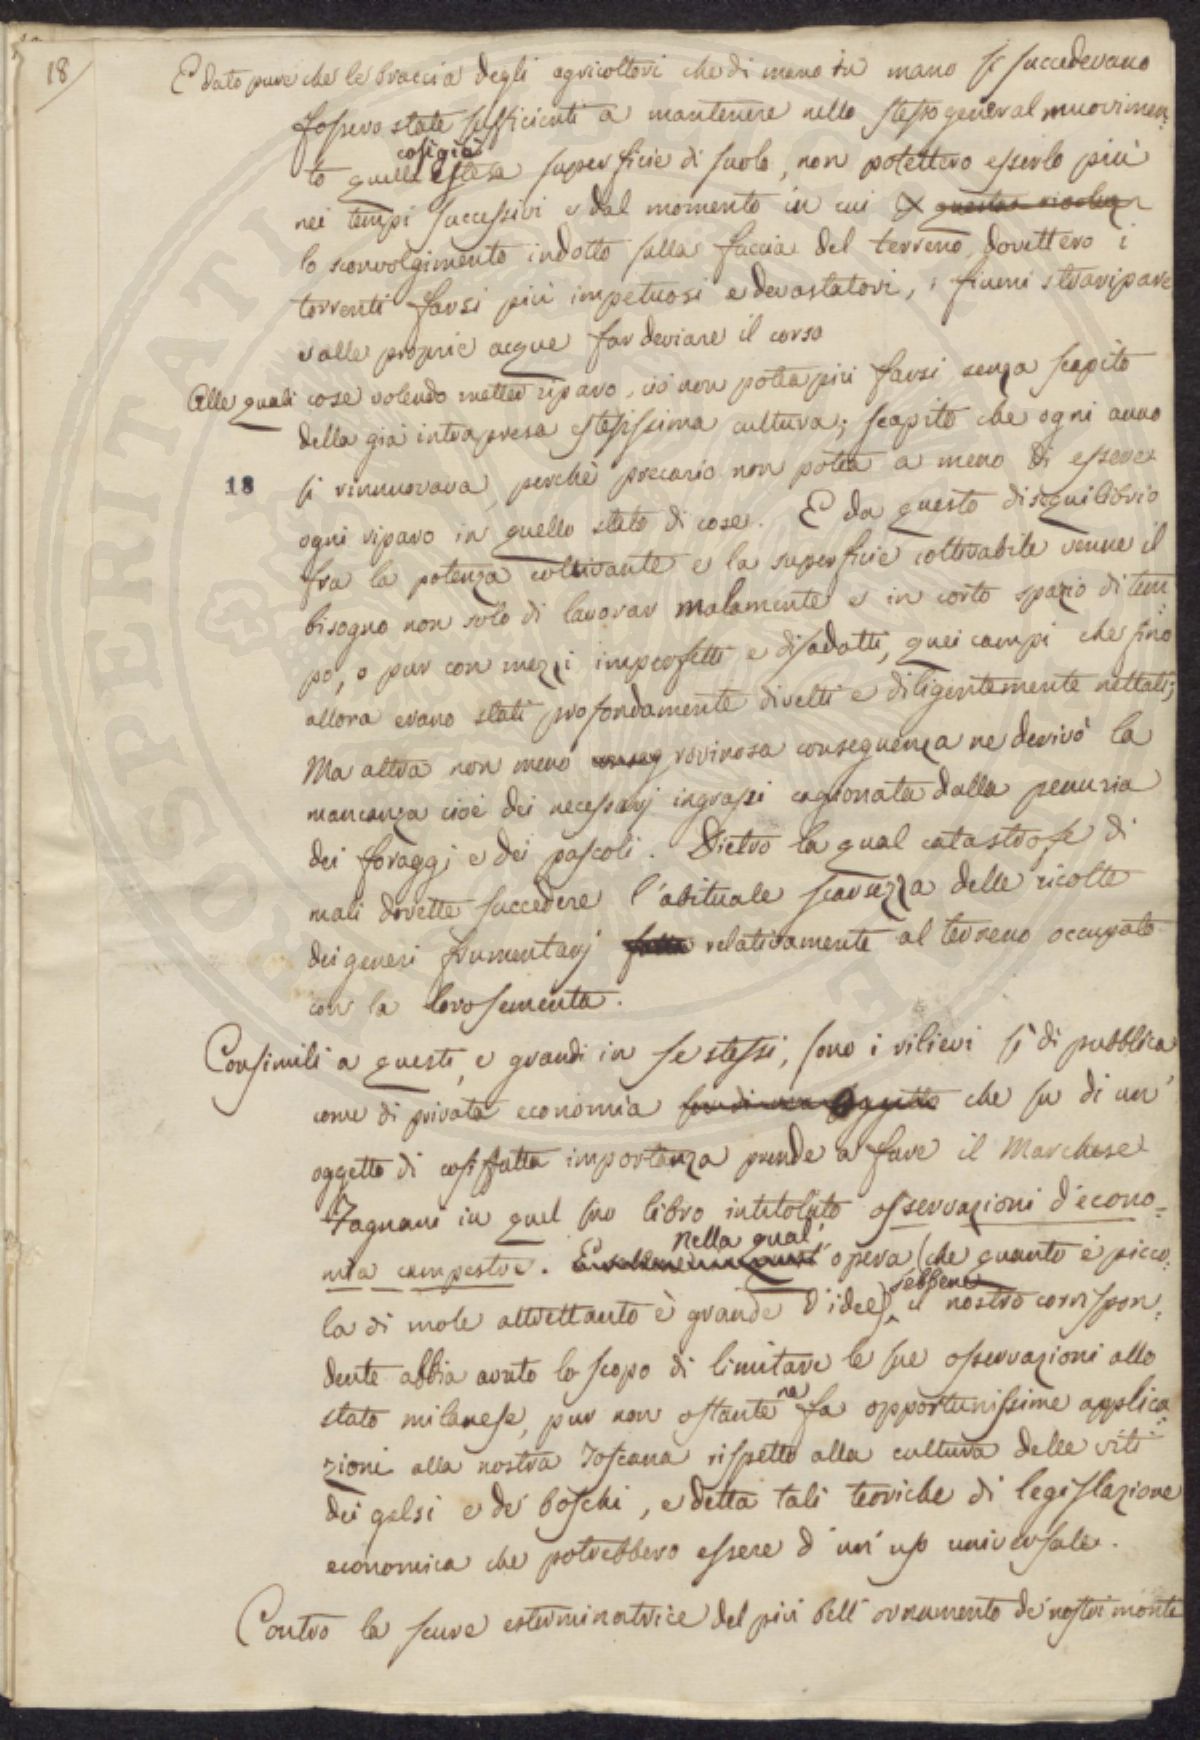 18
E dato pure che le braccia degli agricoltori che di mano in mano si succedevano
fossero state sufficienti a mantenere nello stesso general muovimen=
cosi già
to quella estesa superficie di suolo, non potettero esserlo più
nei tempi successivi e dal momento in cui questa
lo sconvolgimento indotto sulla faccia del terreno, dovettero i
torrenti farsi più impetuosi e devastatori, i fiumi straripare
e alle proprie acque far deviare il corso
Alle quali cose volendo metter riparo, ciò non potea più farsi senza scapito
della già intrapresa estesissima cultura; scapito che ogni anno
18 si rinnuovava, perchè precario non potea a meno di essere
ogni riparo in quello stato di cose. E da questo disequilibrio
fra la potenza coltivante e la superficie coltivabile venne il
bisogno non solo di lavorar malamente e in corto spazio di tem=
po, o pur con mezzi imperfetti e disadatti, quei campi che fino
allora erano stati profondamente divelti e diligentemente nettati;
Ma altra non meno conseg rovinosa conseguenza ne derivò la
mancanza cioè dei necessarj ingrassi cagionata dalla penuria
dei foraggj e dei pascoli. Dietro la qual catastrofe di
mali dovette succedere l'abituale scarsezza delle ricolte
dei generi frumentarj fatta relativamente al terreno occupato
con la loro sementa.
Consimili a questi, e grandi in se stessi, sono i rilievi sì di pubblica
come di privata economia oggetto che su di un'
oggetto di cosiffatta importanza prende a fare il Marchese
Fagnani in quel suo libro intitolato osservazioni d'econo=
nella qual'
mia campestre. opera (che quanto è picco=
sebbene
la di mole altrettanto è grande d'idee), il nostro corrispon=
dente abbia avuto lo scopo di limitare le sue osservazioni allo
ne
stato milanese, pur non ostante fa opportunissime applica=
zioni alla nostra Toscana rispetto alla cultura delle viti
dei gelsi e de' boschi, e detta tali teoriche di legislazione
economica che potrebbero essere d'un'uso universale.
Contro la scure esterminatrice del più bell'ornamento de' nostri monti
PROSPERITATI